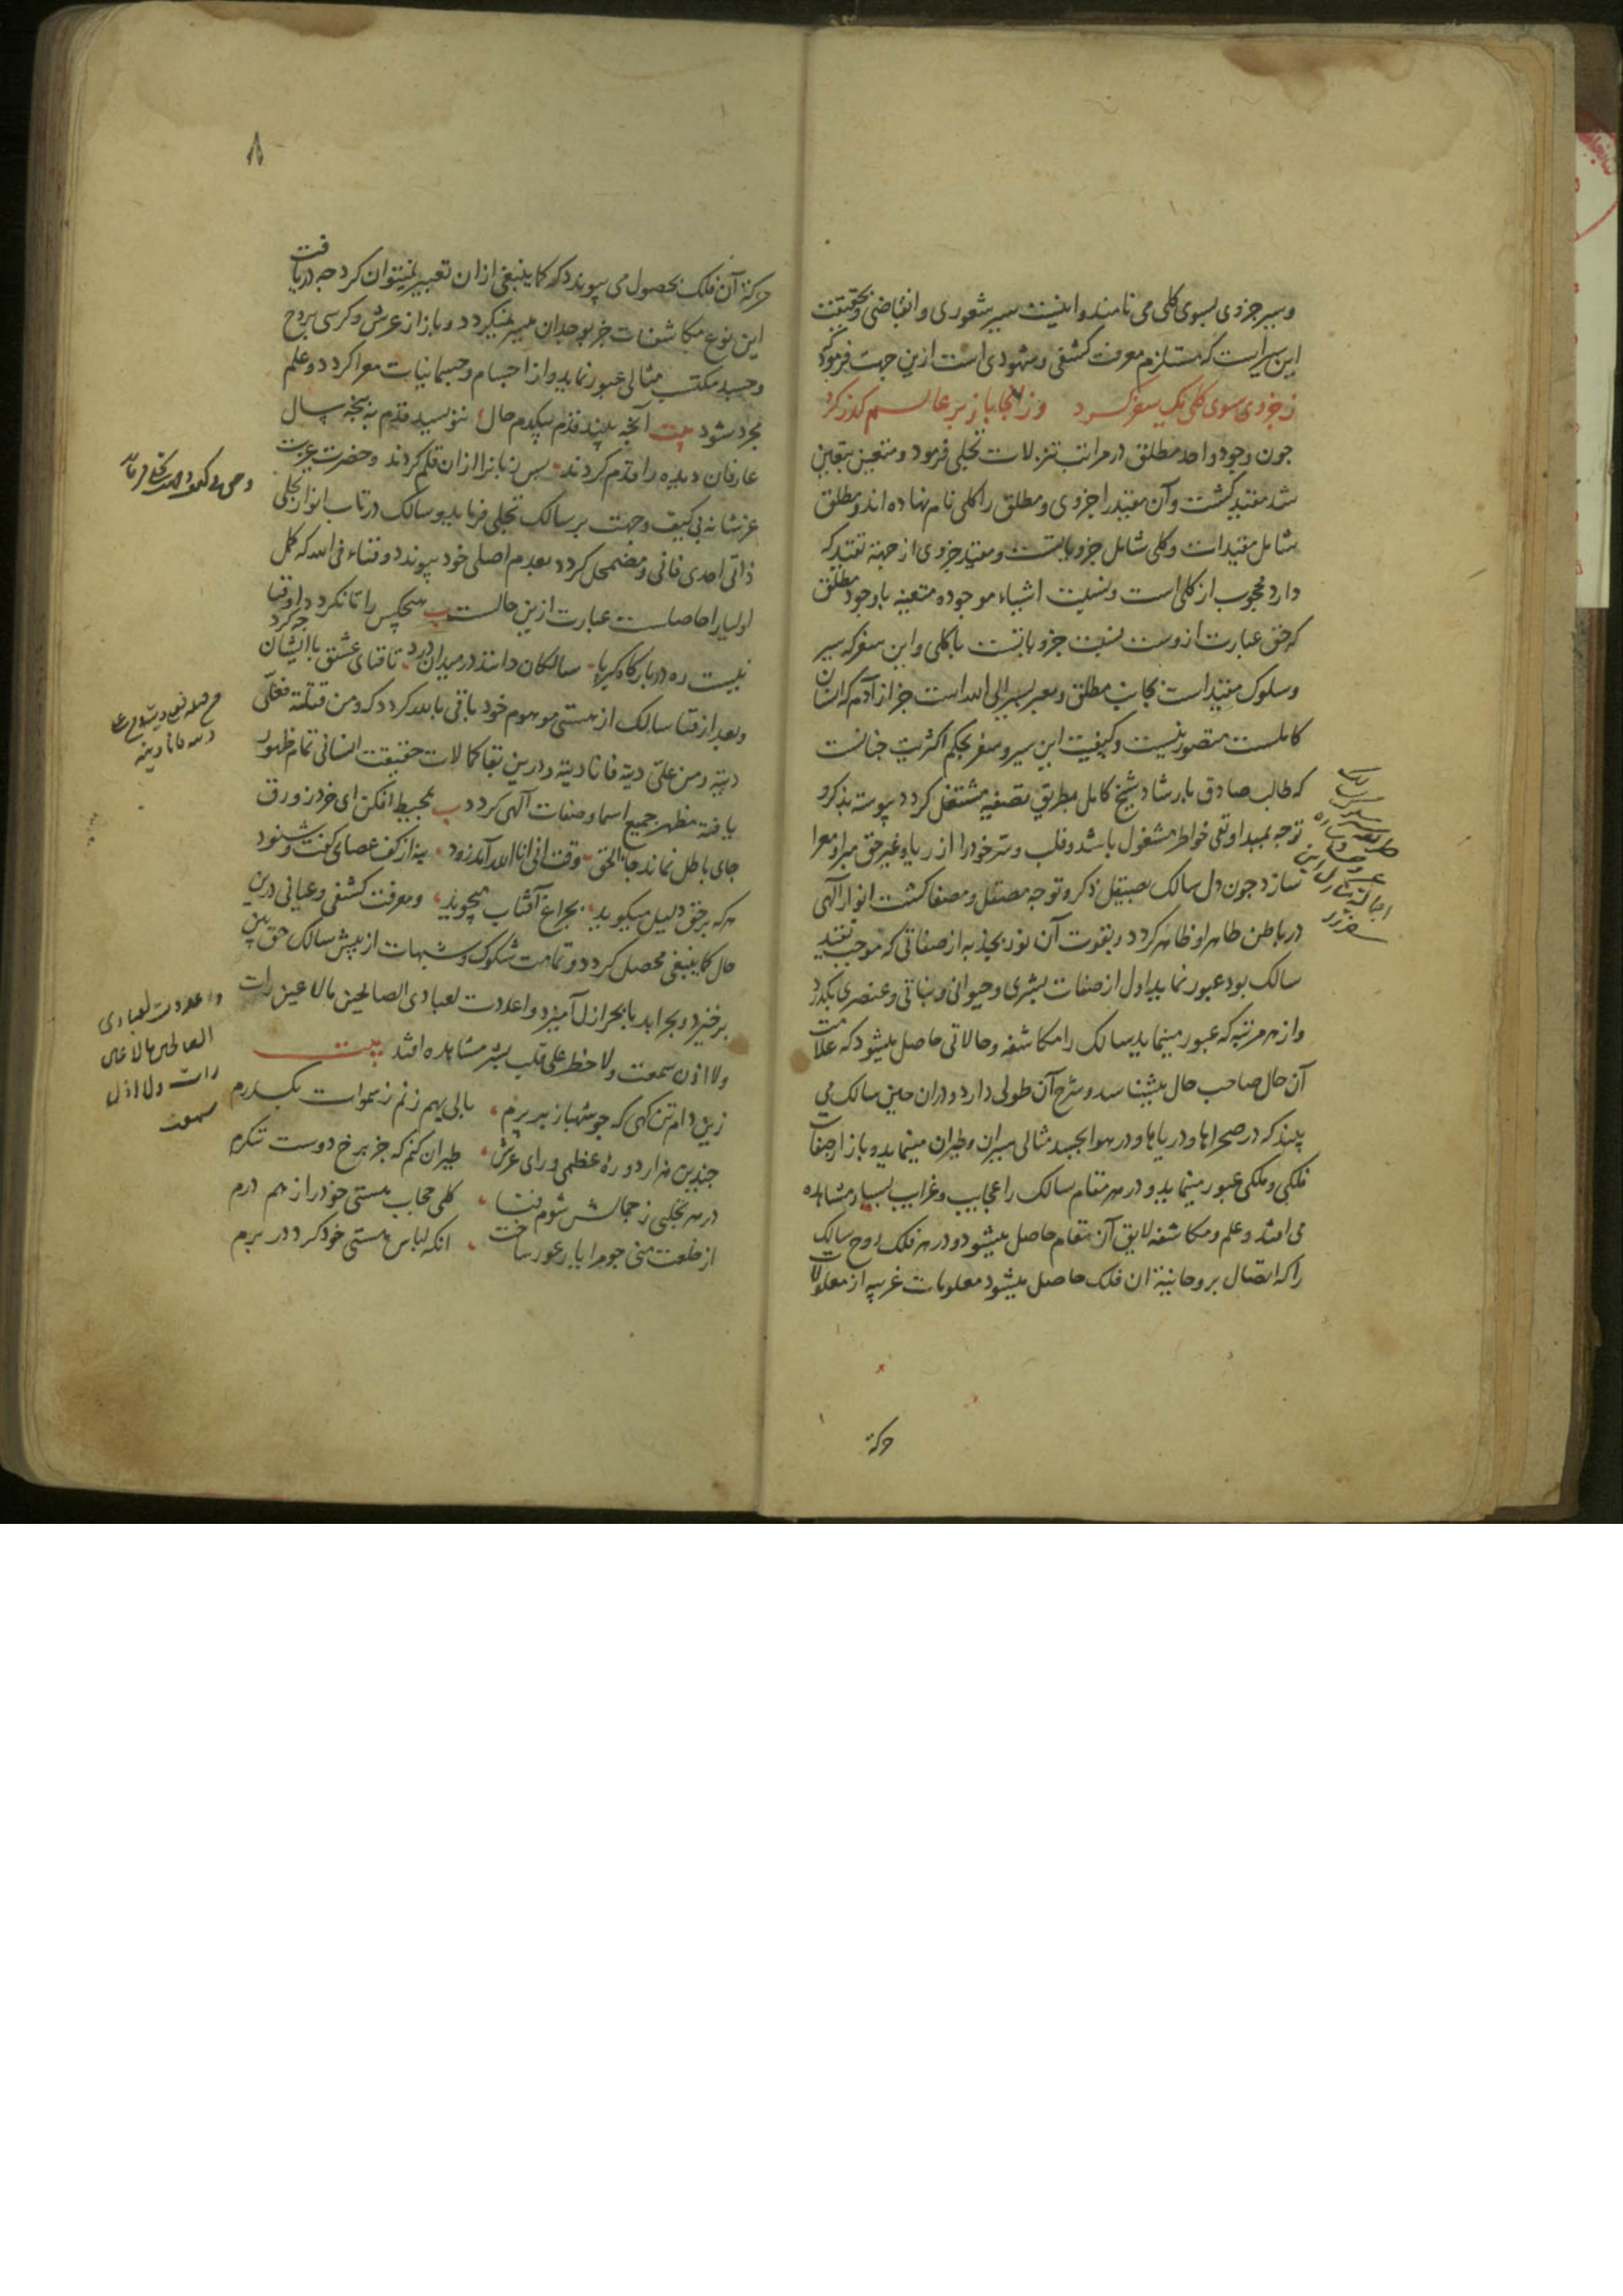 و سیر جزوی بسوی کلی می نامند و اینست سیر شعوری و انقباضی و بحقیقت
این سیر است که مستلزم معرفت کشفی و شهودی است ازین جهت فرمود که
ز جزوی سوی کلی یک سفر کرد وز انجا باز بر عالم گذر کرد
چون وجود واحد مطلق در مراتب تنزلات تجلی فرمود و متعین بتعین
شد مقید گشت و آن مقید را جزوی و مطلق را کلی نام نهاده اند و مطلق
شامل مقیدات و کلی شامل جزویاتست و مقید جزوی از جهة تقید که
دارد محجوب از کلی است و نسبت اشیاء موجوده متعینه با وجود مطلق
که حق عبارت ازوست نسبت جزویاتست با کلی و این سفر که سیر
و سلوک مقید است بجانب مطلق و معبر بسیر الی الله است جز از آدم که انسان
کاملست متصور نیست و کیفیت این سیر و سفر بحکم اکثریت چنانست
که طالب صادق بارشاد شیخ کامل بطریق تصفیه مشتغل گردد پیوسته بذکر و
توجه بمبدا و نفی خواطر مشغول باشد و قلب و سر خود را از ریا و غیر حق مبرا و معرا
سازد چون دل سالک بصیقل ذکر و توجه مصقل و مصفا گشت انوار آلهی
در باطن طاهر او ظاهر گردد و بقوت آن نور بجذبه از صفاتی که موجب تقید
سالک بود عبور نماید اول از صفات بشری و حیوانی و نباتی و عنصری بگذرد
و از هر مرتبه که عبور مینماید سالک را مکاشفه و حالاتی حاصل میشود که علامت
آن حال صاحب حال میشناسد و شرح آن طولی دارد و دران حین سالک می
بیند که در صحراها و دریاها و در هوا بجسد مثالی سیران و طیران مینماید و باز از صفات
فلکی و ملکی عبور مینماید و در هر مقام سالک را عجایب و غرایب بسیار مشاهده
می افتد و علم و مکاشفه لایق آن مقام حاصل میشود و در هر فلک روح سالک
را که اتصال بروحانیة ان فلک حاصل میشود معلومات غریبه از معلولات
حرکة
٨
حرکة آن فلک بحصول می پیوندد که کما ینبغی ازان تعبیر نمیتوان کرد چه دریافت
این نوع مکاشفات جز بوجدان میسر نمیگردد و باز از عرش و کرسی بروح
و جسد مکتسب مثالی عبور نماید و از اجسام و جسمانیات معرا گردد و علم
مجرد شود بیت آنچه بیند قدم بیکدم حال ننویسد قلم به پنجه سال
عارفان دیده را قدم کردند پس زبانرا ازان قلم کردند و حضرت عزت
عز شانه بی کیف و جهت بر سالک تجلی فرماید و سالک در تاب انوار تجلی
ذاتی احدی فانی و مضمحل گردد بعدم اصلی خود پیوندد و فناء فی الله که کمل
اولیا را حاصلست عبارت ازین حالست ب هیچکس را تا نگردد او فنا
نیست ره در بارگاه کبریا سالکان دانند در میدان درد تا فنای عشق با ایشان چه کرد
و بعد از فنا سالک از هستی موهوم خود باقی بالله گردد که و من قتلته فعلی
دیته و من علی دیته فانا دیته و درین بقا کمالات حقیقت انسانی تمام ظهور
یافته مظهر جمیع اسما و صفات آلهی گردد ب بمحیط افکن ای خرد زورق
جای باطل نماند جاء الحق وقت انی انا الله آمد زود بنه از کف عصای گفت و شنود
هرکه بر حق دلیل میگوید بچراغ آفتاب میجوید و معرفت کشفی و عیانی درین
حال کما ینبغی محصل گردد و تمامت شکوک و شبهات از پیش سالک حق بین
برخیزد و بحر ابد با بحر ازل آمیزد و اعددت لعبادی الصالحین مالا عین رات
ولا اذن سمعت ولا خطر علی قلب بشر مشاهده افتد بیت
زین دام تن گهی که چو شهباز بر پرم بالی بهم زنم ز سموات بگذرم
چندین هزار دوره عظمی ورای عرش طیران کنم که جز برخ دوست ننگرم
در هر تجلیی ز جمالش شوم فنا کلی حجاب هستی خود را ز هم درم
از خلعت منی چو مرا یار عور ساخت انگه لباس هستی خود کرد در برم
و اعددت لعبادی
الصالحین مالا عین
رات ولا اذن
سمعت